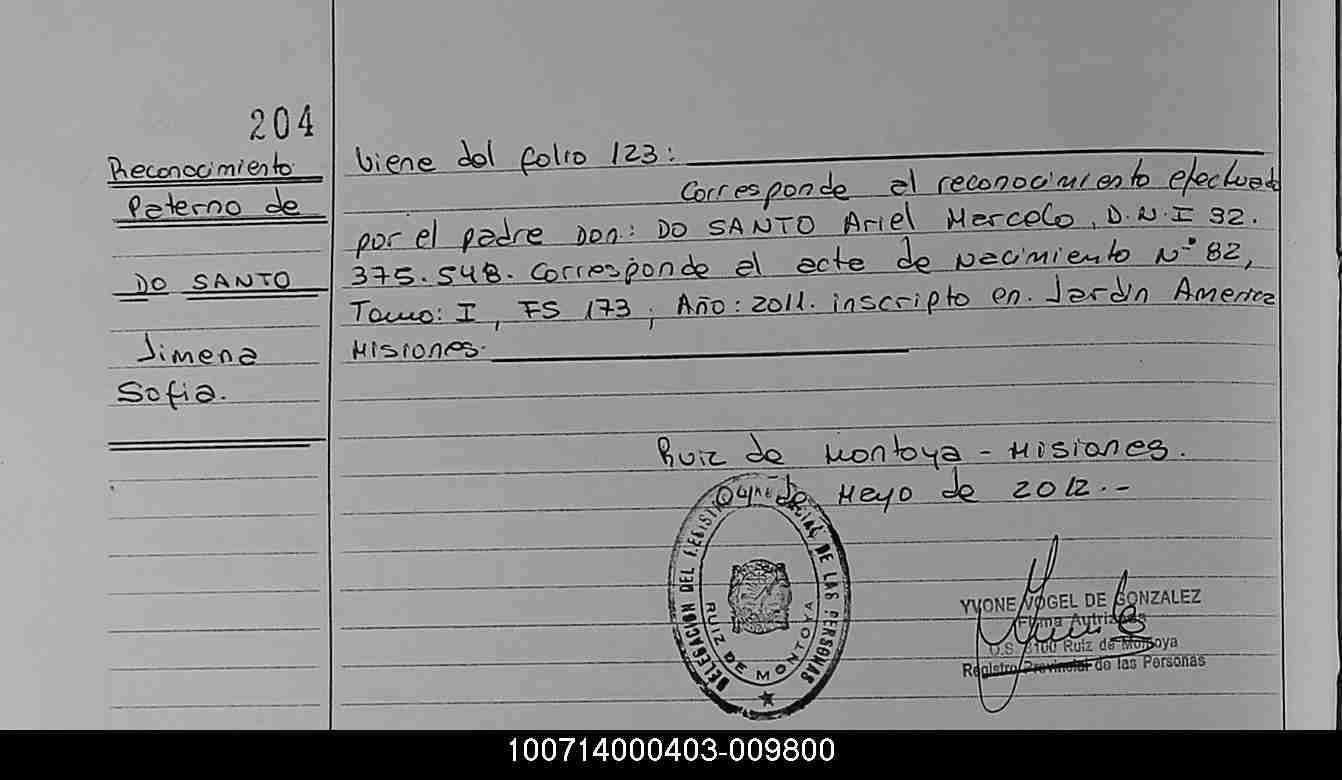 204
Reconocimiento
Paterno de
DO SANTO
Jimena
Sofia.
Viene del folio 123:
Corresponde al reconocimiento efectuado
por el padre Don: DO SANTO Ariel Marcelo, D.N.I 92.
375.548. Corresponde al acta de Nacimiento Nº 82,
Tomo: I, FS 173; Año: 2011. inscripto en. Jardin America
Misiones.
Ruiz de Montoya - Misiones.
04 de Mayo de 2012.-
DELEGACION DEL REGISTRO PROVINCIAL DE LAS PERSONAS
RUIZ DE MONTOYA
YVONE VOGEL DE GONZALEZ
Firma Autrizada
O.S. 3100 Ruiz de Montoya
Registro Provincial de las Personas
100714000403-009800